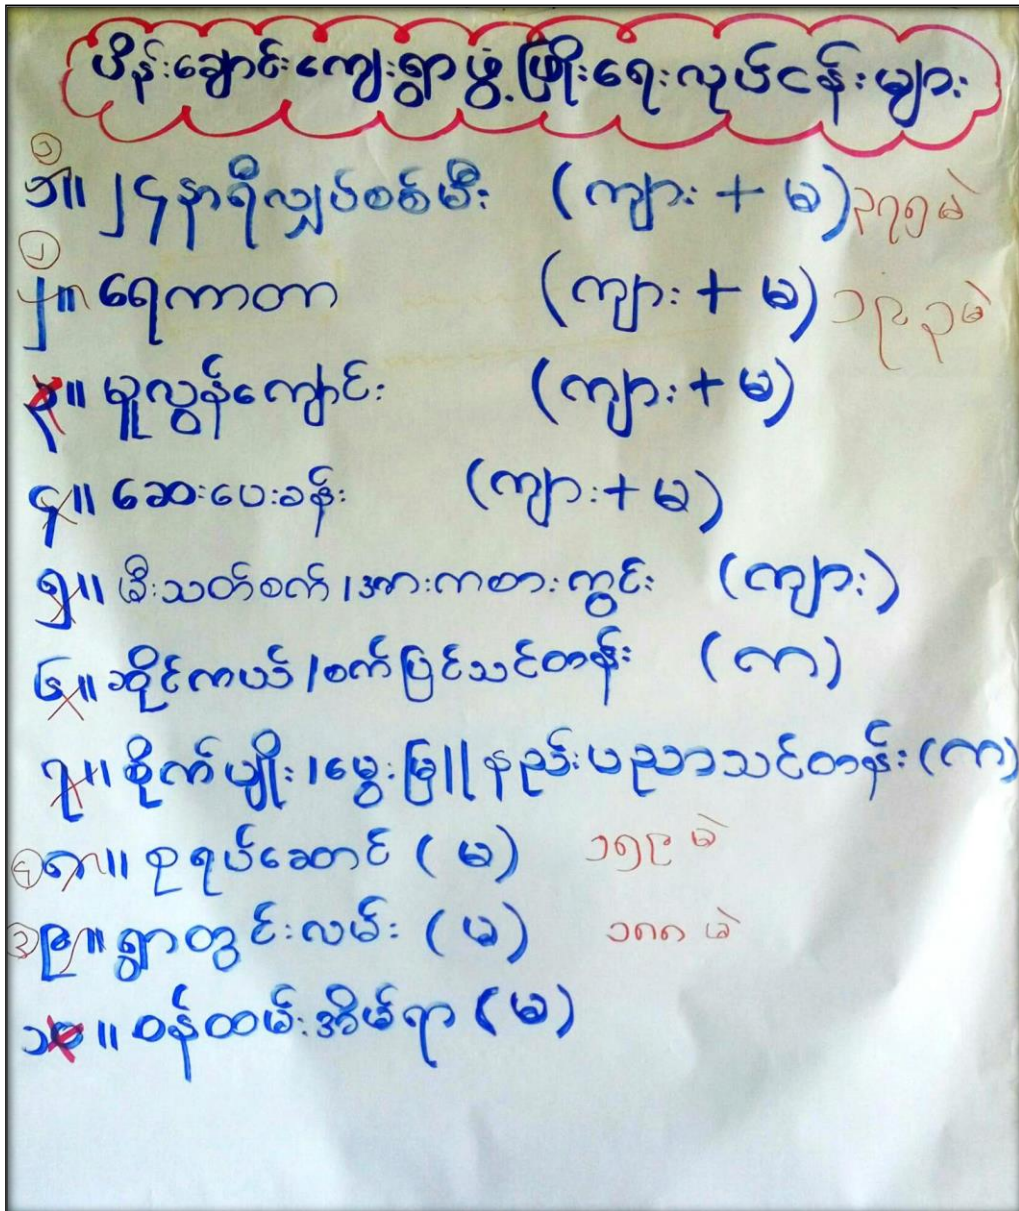 ပိန်းချောင်းကျေးရွာဖွံ့ဖြိုးရေးလုပ်ငန်းများ
၁
၁။ ၂၄နာရီလျှပ်စစ်မီး (ကျား + မ) ၃၇၅ မဲ
၂
၂။ ရေကာတာ (ကျား + မ) ၁၉၃ မဲ
၃။ မူလွန်ကျောင်း (ကျား + မ)
၄။ ဆေးပေးခန်း (ကျား + မ)
၅။ မီးသတ်စက် / အားကစားကွင်း (ကျား)
၆။ ဆိုင်ကယ် / စက်ပြင်သင်တန်း (က)
၇။ စိုက်ပျိုး / မွေးမြူ နည်းပညာသင်တန်း (က)
၄ ၈။ စုရပ်ဆောင် (မ) ၁၅၉ မဲ
၃ ၉။ ရွာတွင်းလမ်း (မ) ၁၈၈ မဲ
၁၀။ ဝန်ထမ်းအိမ်ရာ (မ)